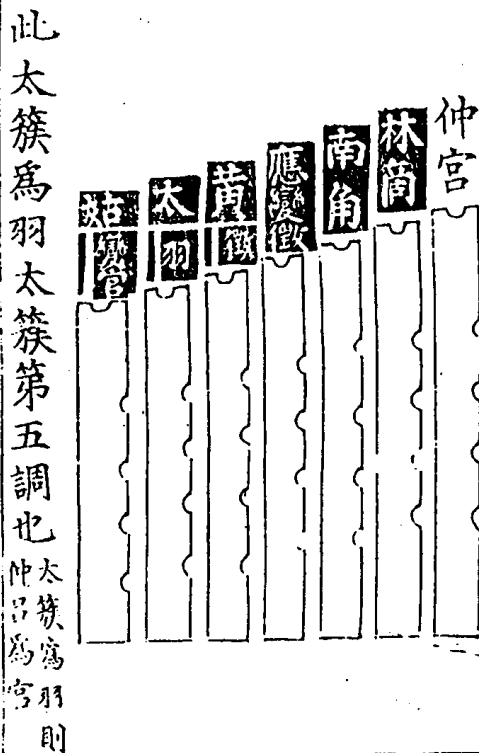 仲宮
林商
南角
應變徵
黃徵
太羽
姑變宮
此太簇爲羽太簇第五調也
太簇爲羽則
仲呂爲宮